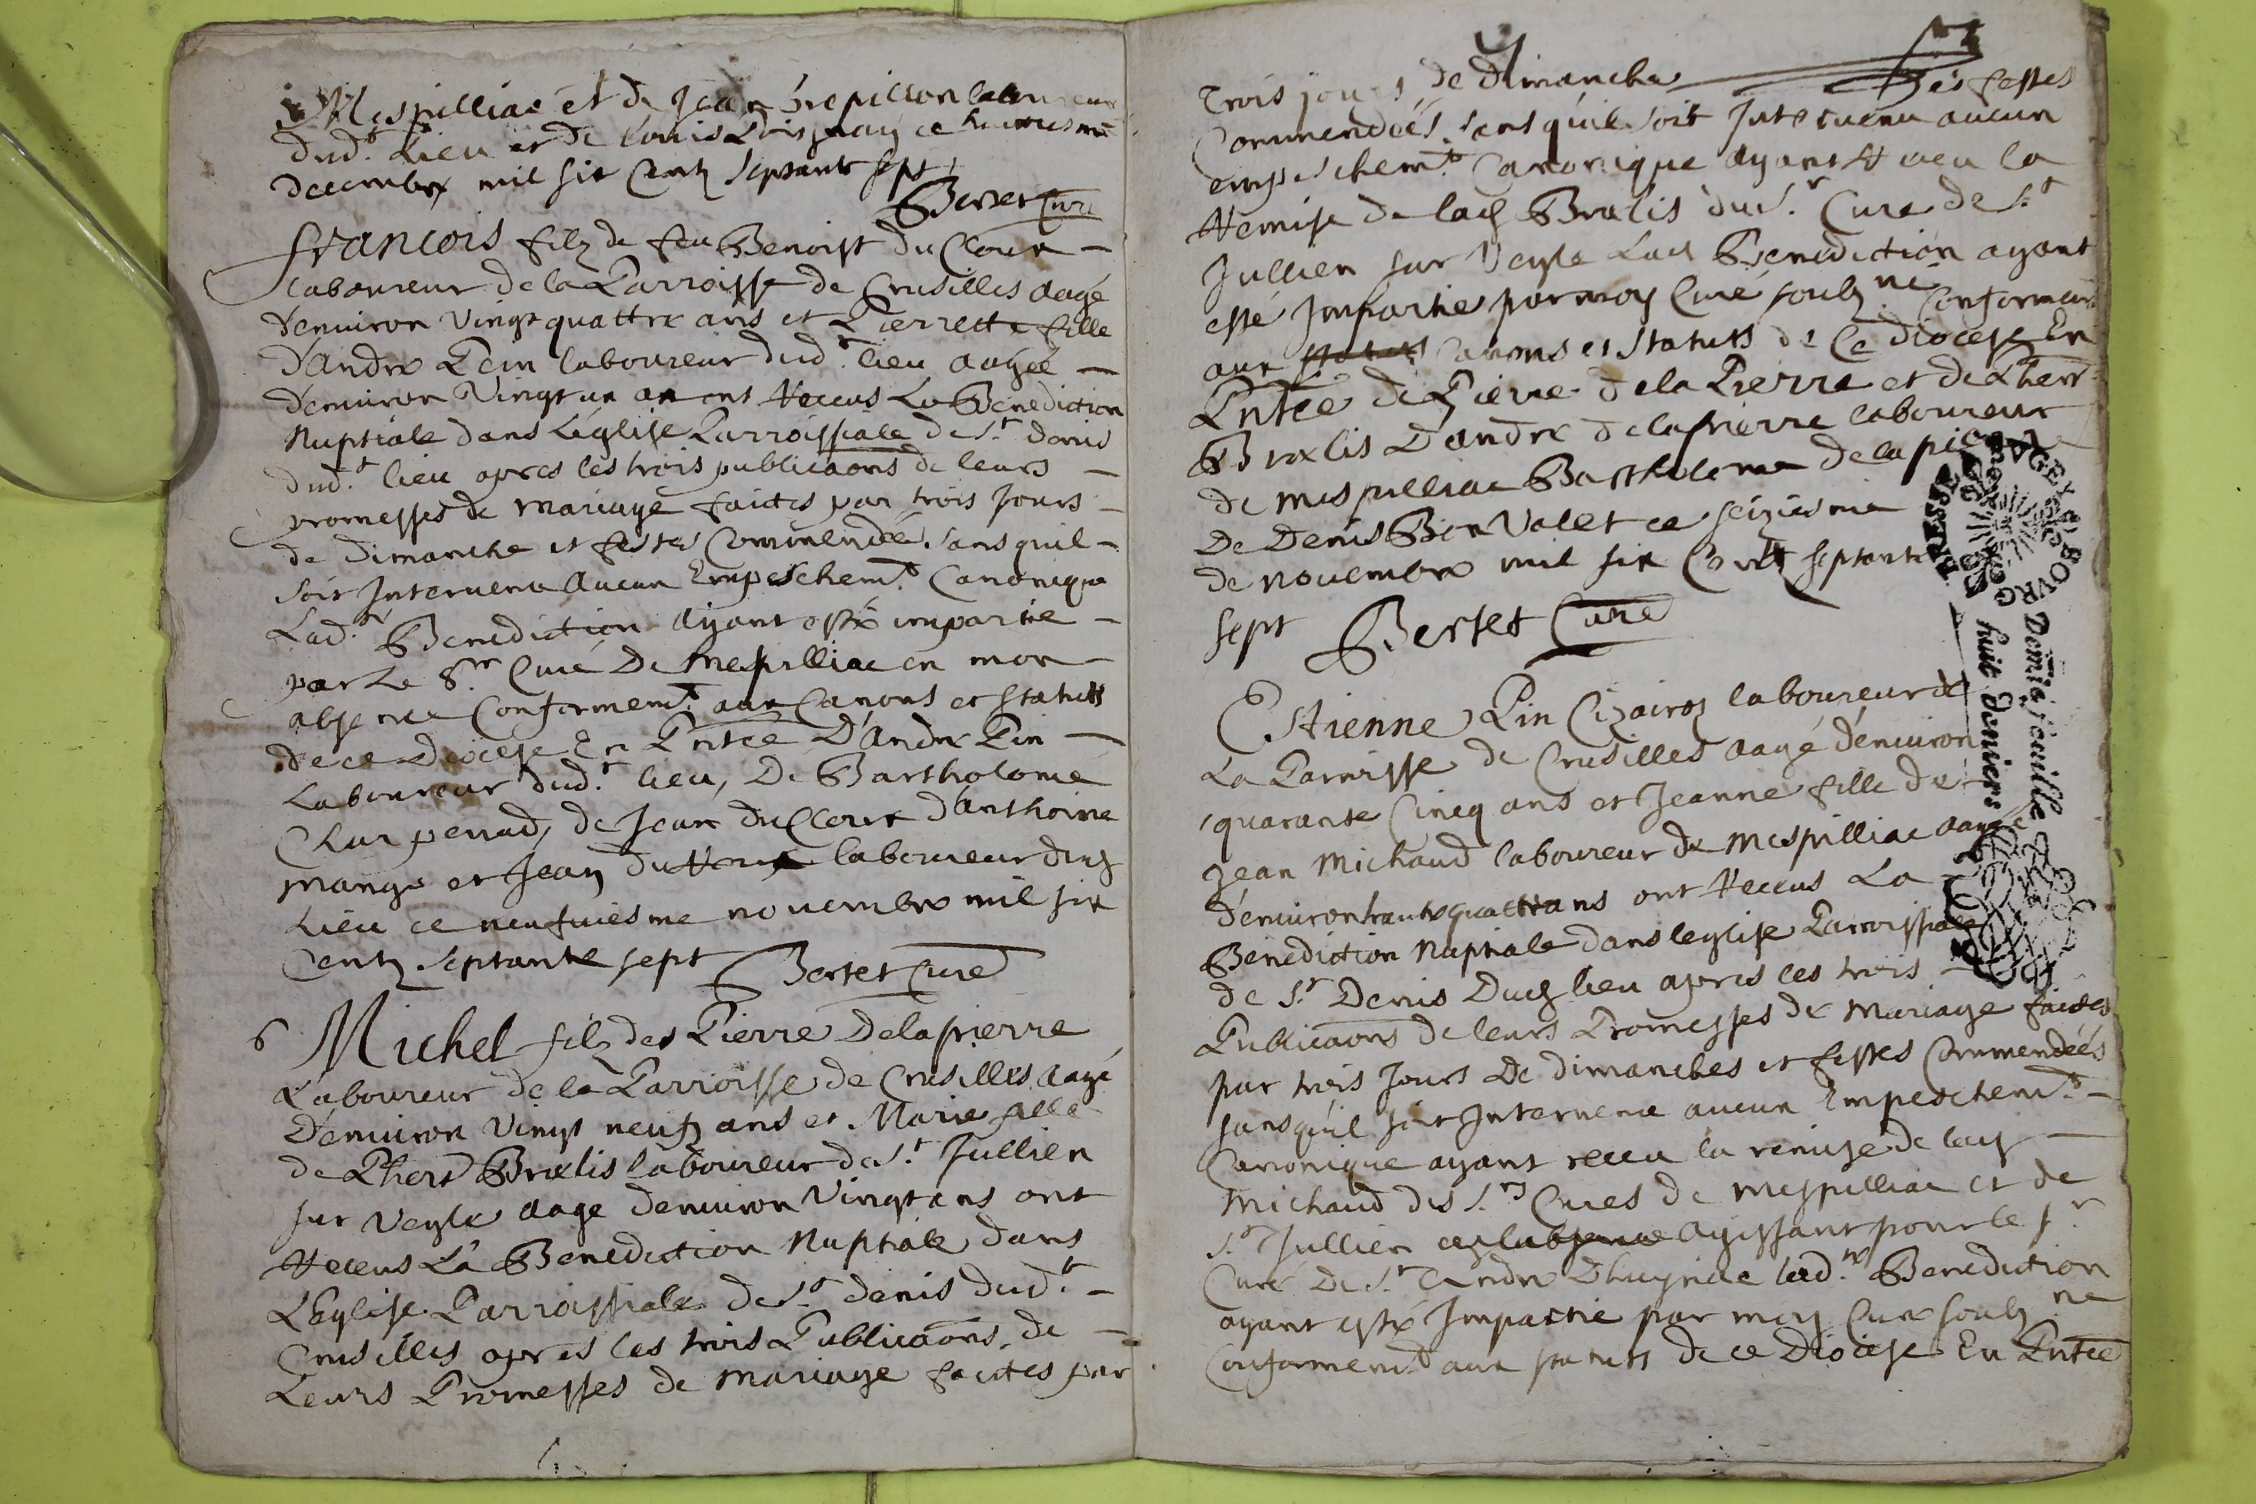 Mespilliac et de Jean Grepillon laboureur
dud.t lieu et de Louis Loisy ce
decembre mil six Cents Septante sept
Bertet Curé
francois filz de feu Benoist du Clour –
laboureur de la Parroisse de Crusilles aagé
denuiron Vingt quattre ans et Pierrette fille
d'Andre Pein laboureur dud.t lieu aagée –
denuiron Vingt un an ont Receus La Benediction
Nuptiale dans L'eglise Parroissiale de S.t denis
dud.t lieu apres les trois publicaons de leurs –
promesses de mariage faictes par trois Jours –
de dimanche et festes Commendé sans quil –
soit Interuenu Aucun Empeschem.t Canonique
Lad.te Benediction Ayant esté impartie –
par Le S.r Curé De Mespilliac en mon –
absence Conformem.t aux Canons et statuts
de ce Diocese En Pntce D'Andre Pin –
Laboureur dud.t lieu, De Bartholomé
Charpenad, de Jean du Clour d'Anthoine
mange et Jean du laboureur dud
Lieu ce neufuiesme nouembre mil six
Cents Septante sept Bertet Curé
6 Michel filz des Pierre Delapierre
Laboureur de la Parroisse de Crusilles aagé
D'enuiron Vingt neufz ans et Marie fille
de Phert Bralis laboureur de S.t Jullien
sur Veyle aage denuiron Vingt ans ont
Receus La Benediction Nuptiale dans
L'Eglise Parroissiale de S.t denis dud.t –
Crusilles apres les trois Publicaons de –
Leurs Promesses de mariage faictes par
trois jours de dimanche des festes
Commendées sans quil soit Interuenu aucun
empeschem.t Canonique Ayant Receu la
Remise de lad Bralis du S.r Cure de S.t
Jullien sur Veyle Lad Benediction ayant
esté Impartie par moy Curé soubz né Conformem
aux Canons et statuts de Ce diocese En
Pntce de Pierre dela Pierre et de Phert
Bralis D'andre delapierre laboureur
de mespilliac Bartholeme dela
De Denis Bon Valet ce seiziesme
de nouembre mil six Cents septante
sept Bertet Curé
Estienne Pin Cizaire laboureur de
La Parroisse de Crusilles aagé d'enuiron
quarante Cincq ans et Jeanne fille de
Jean Michaud laboureur de Mespilliac aagée
d'enuiron trante quattre ans ont Receus La –
Benediction Nuptiale dans leglise Parroissiale
de S.t Denis Dud lieu apres les trois –
Publicaons de leurs Promesses de mariage faictes
par trois Jours De dimanches et festes Commendées
sans quil soit Interuenu aucun Empeschem.t –
Canonique ayant receu la remise de lad –
Michaud des S.rs Cures de Mespilliac et de
S.t Jullien agissant pour le s.r
Curé De S.t Andre D'huyriac lad.te Benediction
ayant esté Impartie par moy Cure soubz né
Conformem.t aux statuts de ce Diocese En Pntce
GEN BOVRG BRESSE
Demie feuille
huit deniers